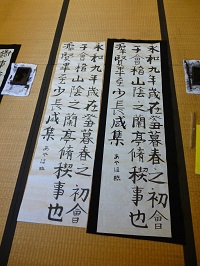 永和九年歳在癸丑暮春之初會
于會稽山陰之蘭亭脩禊事也
群賢畢至少長咸集
永和九年歳在癸丑暮春之初會
于會稽山陰之蘭亭脩禊事也
群賢畢至少長咸集